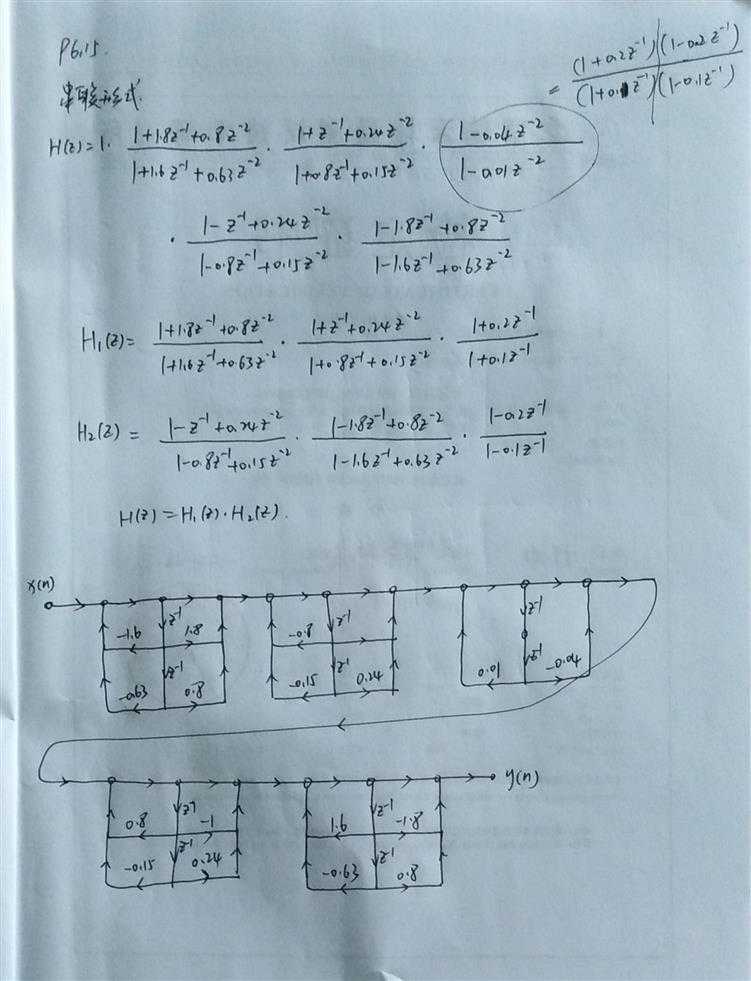 P6.15.
串联形式.
= (1+0.2z⁻¹)(1-0.2z⁻¹) / (1+0.1z⁻¹)(1-0.1z⁻¹)
H(z)=1· (1+1.8z⁻¹+0.8z⁻²)/(1+1.6z⁻¹+0.63z⁻²) · (1+z⁻¹+0.24z⁻²)/(1+0.8z⁻¹+0.15z⁻²) · (1-0.04z⁻²)/(1-0.01z⁻²)
· (1-z⁻¹+0.24z⁻²)/(1-0.8z⁻¹+0.15z⁻²) · (1-1.8z⁻¹+0.8z⁻²)/(1-1.6z⁻¹+0.63z⁻²)
H₁(z)= (1+1.8z⁻¹+0.8z⁻²)/(1+1.6z⁻¹+0.63z⁻²) · (1+z⁻¹+0.24z⁻²)/(1+0.8z⁻¹+0.15z⁻²) · (1+0.2z⁻¹)/(1+0.1z⁻¹)
H₂(z) = (1-z⁻¹+0.24z⁻²)/(1-0.8z⁻¹+0.15z⁻²) · (1-1.8z⁻¹+0.8z⁻²)/(1-1.6z⁻¹+0.63z⁻²) · (1-0.2z⁻¹)/(1-0.1z⁻¹)
H(z)=H₁(z)·H₂(z).
x(n)
-1.6 z⁻¹ 1.8 -0.8 z⁻¹ z⁻¹
-0.63 z⁻¹ 0.8 -0.15 z⁻¹ 0.24 0.01 z⁻¹ -0.04
y(n)
0.8 z⁻¹ -1 1.6 z⁻¹ -1.8
-0.15 z⁻¹ 0.24 -0.63 z⁻¹ 0.8